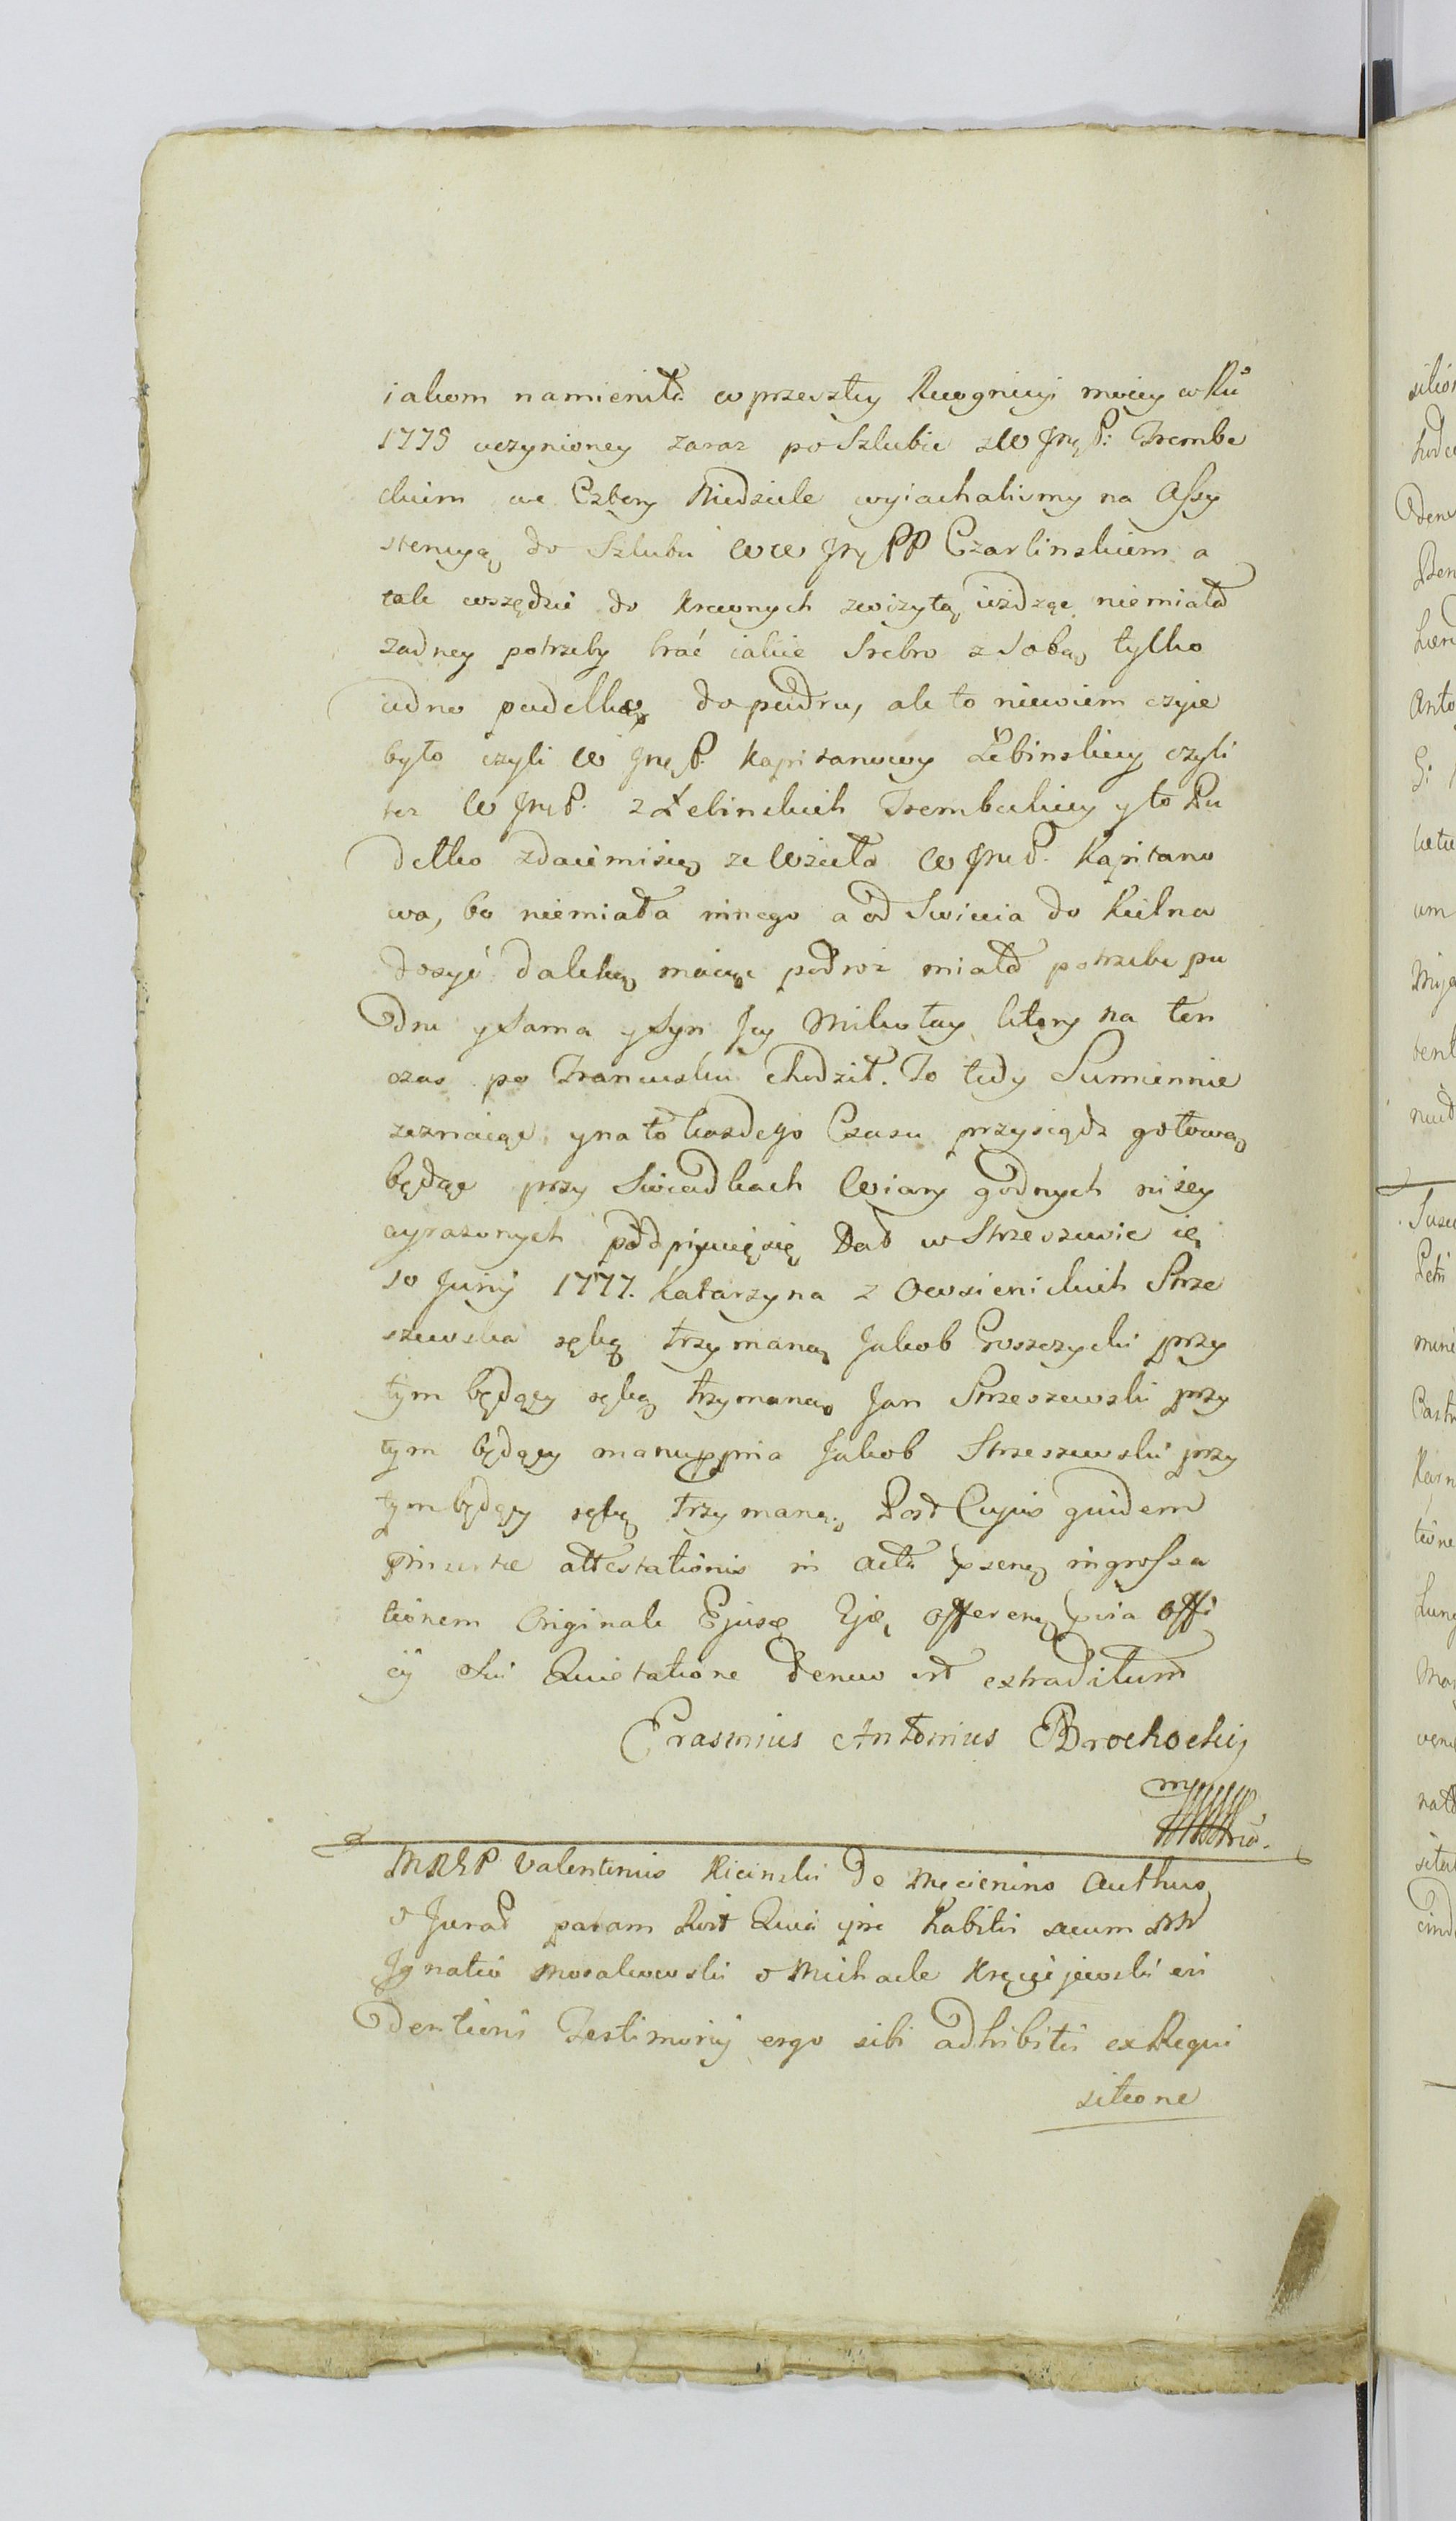 iakom namieniła w przeszłey Rekognicyi moiey w Rku
1775 uczynioney zaraz po Szlubie z W Jmę P: Trembe
ckiem we Cztery Niedziele wyiachalismy na Assy
stencyą do Szlubu WW Jmę PP Czarlinskiem a
tak wszędzie do Krewnych z wizytą ieżdząc niemiała
zadney potrzeby brać iakie Srebro z Sobą, tylko
iedno pudełko do pudru, ale to niewiem czyie
było czyli W Jmę P. Kapitanowy Łebinskiey czyli
tez W Jmę P. z Łebinskich Trembeckiey y to Pu
dełko zdaiemisię ze Wzieła W Jme P. Kapitano
wa, bo niemiała innego a od Swiecia do Kielna
dosyć daleką maiąc podroż miała potrzebe pu
dru y Sama y Syn Jey Mikołay, ktory na ten
czas po Francusku chodził. To tedy Sumiennie
zeznaiąc, y na to kozdego Czasu przysiądz gotową
będąc przy Swiadkach Wiary godnych niżey
wyrazonych podpisuięsię Dat w Strzeszewie
10 Junij 1777. Katarzyna z Owsienickich Strze
szewska ręką trzymaną Jakob Proszczycki przy
tym będący ręką trzymaną Jan Strzeszewski przy
tym będący manu ppria Jakob Strzeszewski przy
tym będący ręką trzymaną. Post Cujus quidem
attestationis in acta psene ingrossa
tionem Originale Ejusde Ejde offeren pvia Offi
cij Sui Quietatione denuo est extraditum
Erasmus Antonius Brochocki
mp
MRSP Valentinus Kicinski de Męcienino Authus
& Jurat param Rast Quia ipse habitis secum NN
Ignatio Morakowski & Michaele Kręciejewski evi
dentioris Testimonij ergo sibi adhibitis ex Requi
sitione